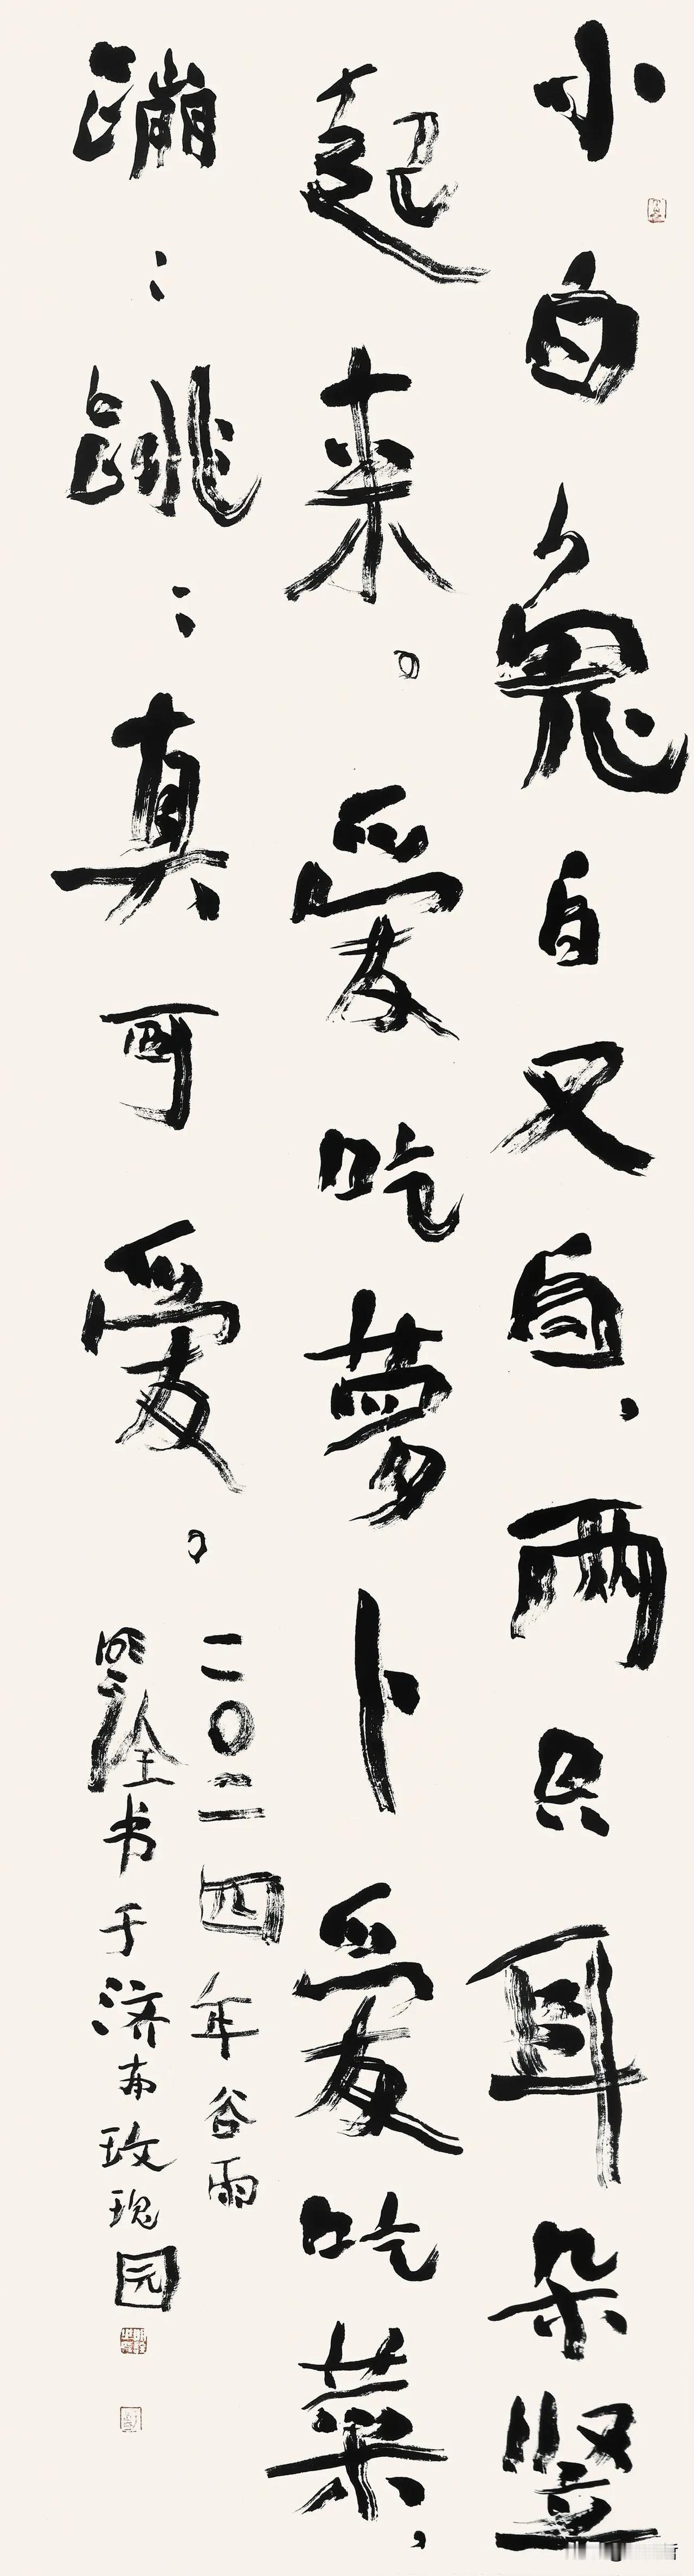 小白兔白又白，两只耳朵竖
起来。爱吃萝卜爱吃菜，
蹦：跳：真可爱。
二〇二四年谷雨
明诠书于济南玫瑰园